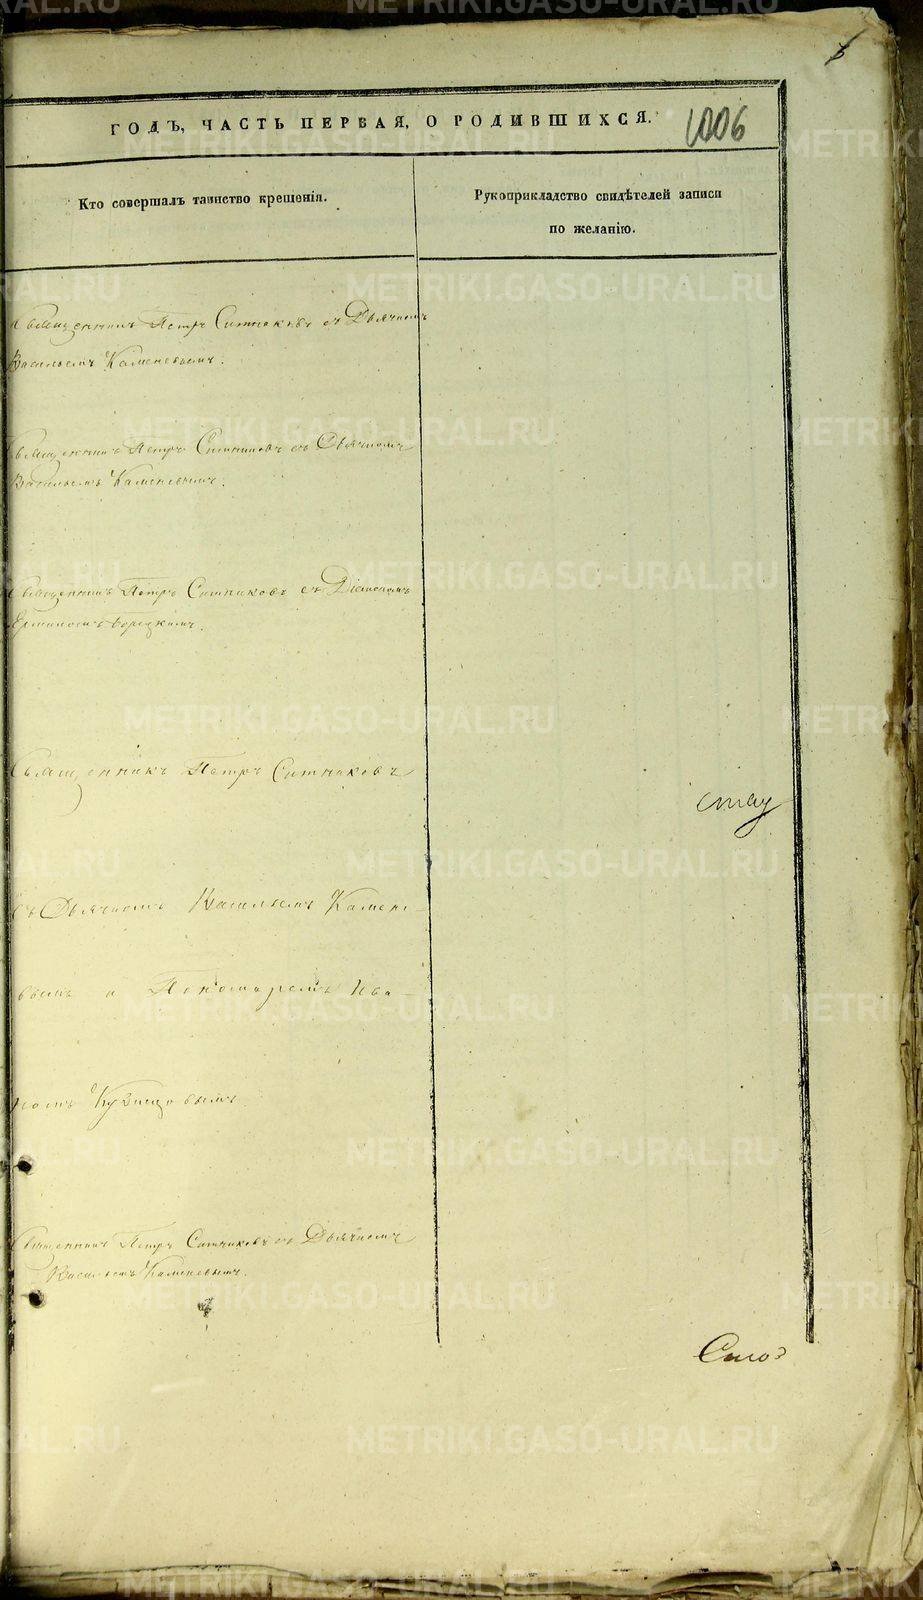 ГОДЪ, ЧАСТЬ ПЕРВАЯ, О РОДИВШИХСЯ.
1006
Кто совершалъ таинство крещенія.
Рукоприкладство свидѣтелей записи
по желанію.
Священникъ Петръ Ситниковъ съ Дьячкомъ
Васильемъ Каменевымъ.
Священникъ Петръ Ситниковъ съ Дьячкомъ
Васильемъ Каменевымъ.
Священникъ Петръ Ситниковъ съ Діакономъ
Священникъ Петръ Ситниковъ
съ Дьячкомъ Васильемъ Камене-
вымъ и Пономаремъ Ива-
номъ Кузнецовымъ
Священникъ Петръ Ситниковъ съ Дьячкомъ
Васильемъ Каменевымъ.
METRIKI.GASO-URAL.RU